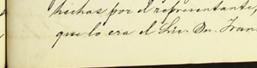 hechas por el representante,
que lo era el Liv. Dn. Fran